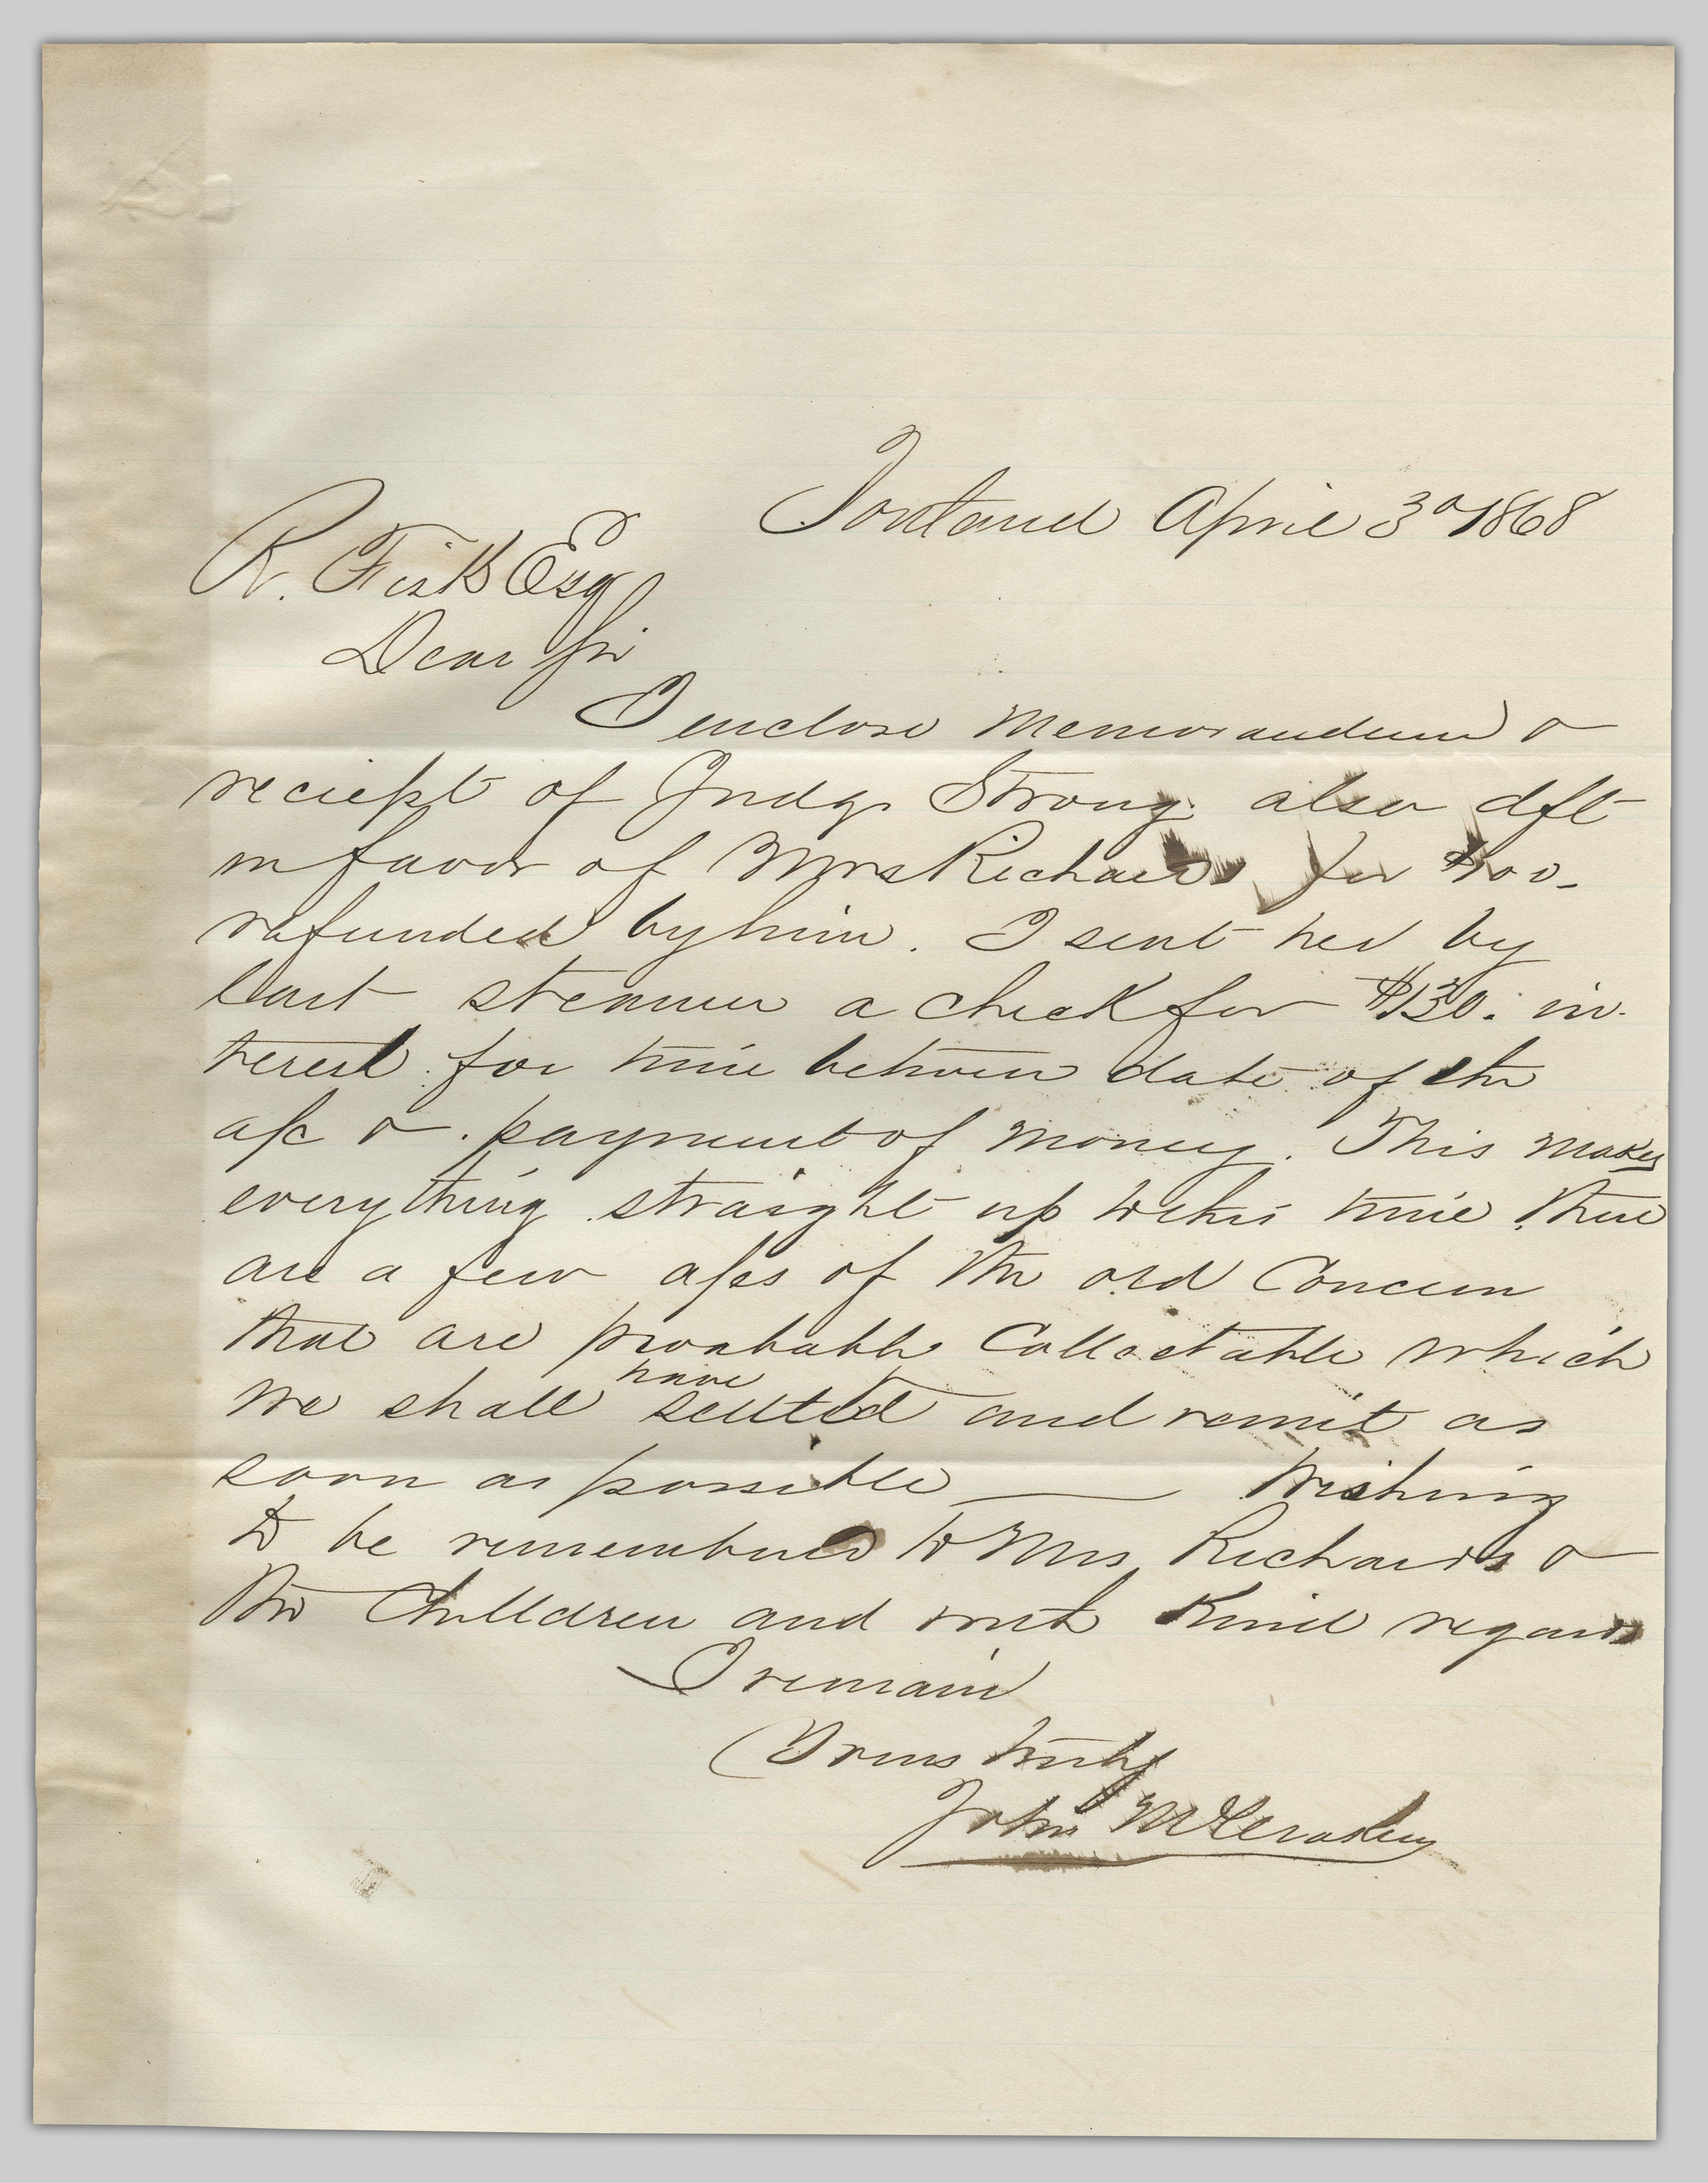 Portland April 3d 1868
R. Fisk Esq
Dear Sir
I enclose Memorandum &
reciept of Judge Strong. also dft
in favor of Mrs Richards for
refunded by him. I sent her by
last steamer a check for $130. in-
terest for time between date of the
a/c & payment of money. This makes
everything straight up to this time. There
are a few a/cs of the old Concern
that are probable Collectable which
we shall have settled and remit as
soon as possible — Wishing
to be remembered to Mrs Richards &
the Children and with Kind regards
I remain
Yours truly
John McCraken